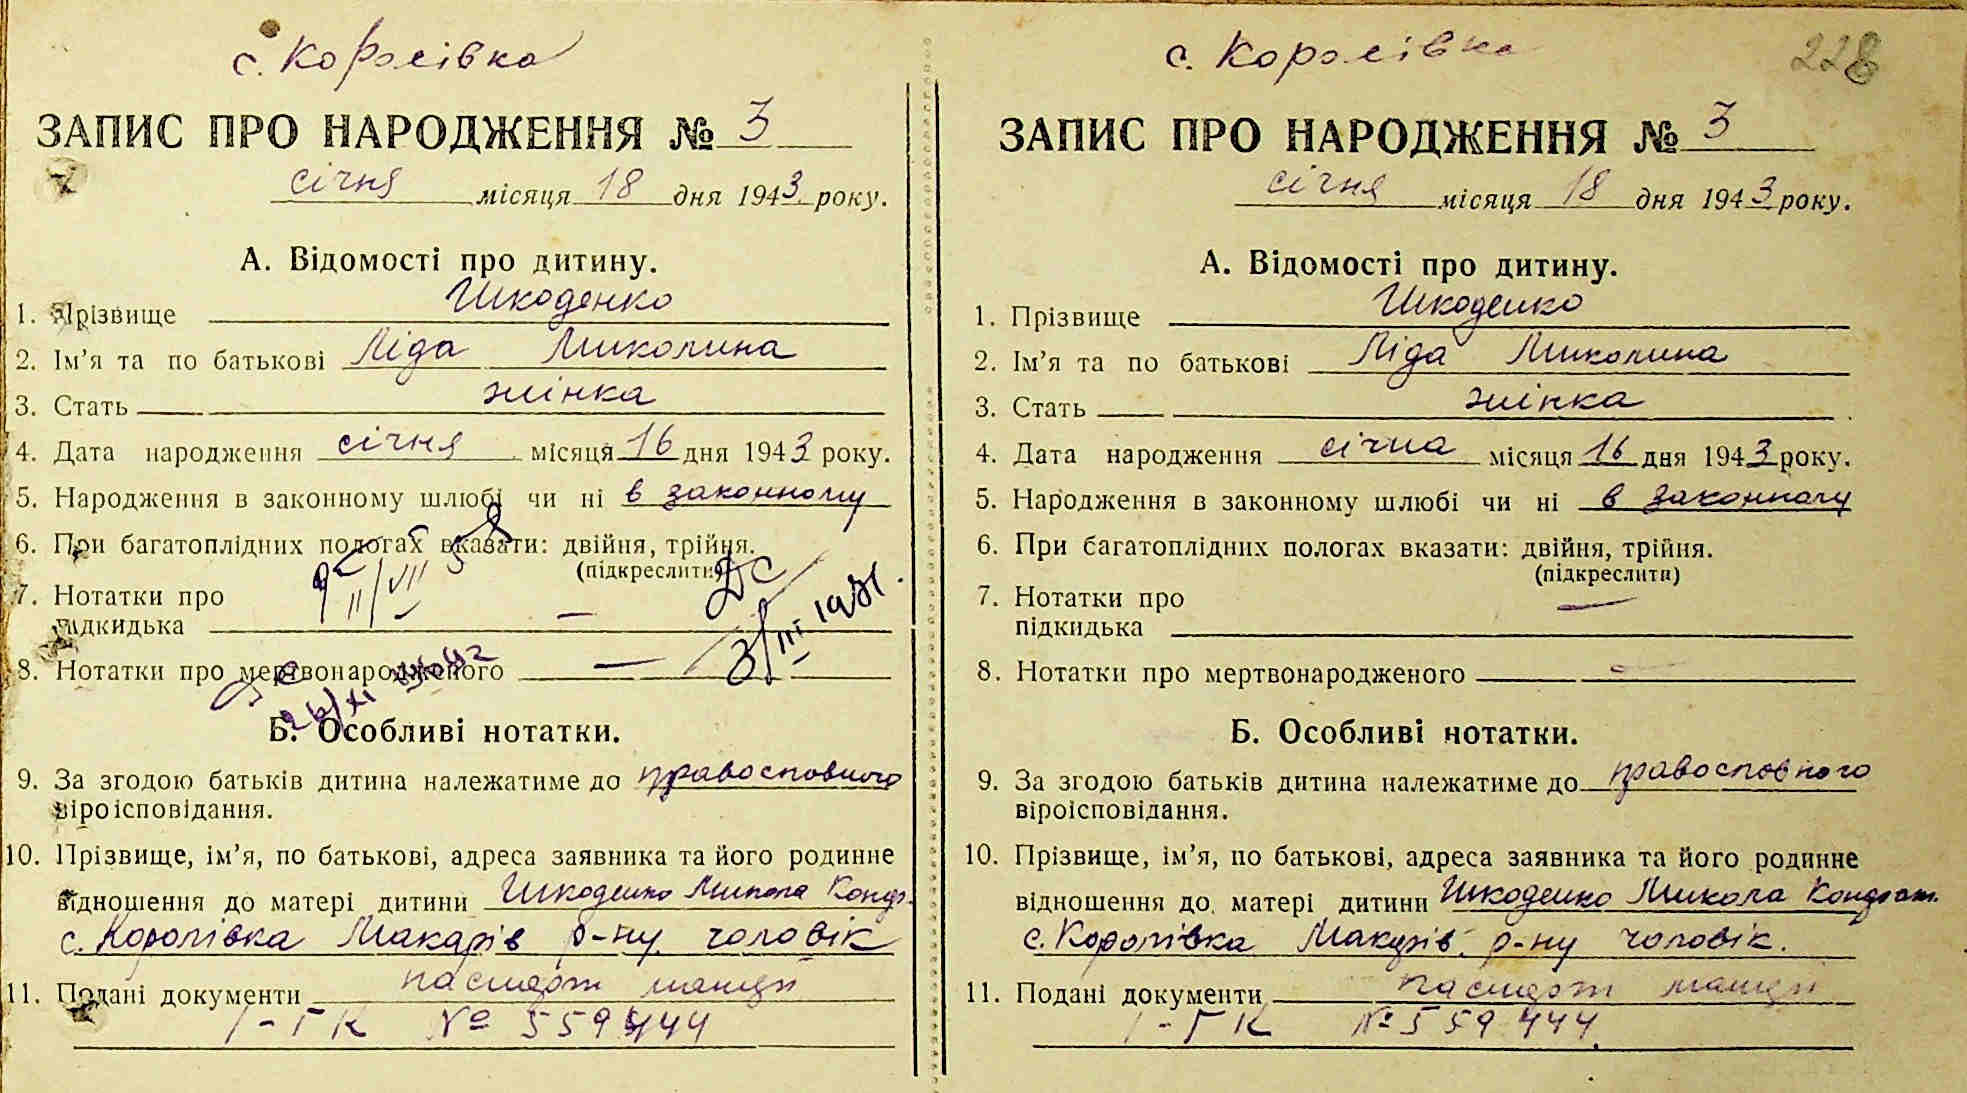 с. Королівка
ЗАПИС ПРО НАРОДЖЕННЯ № 3
січня місяця 18 дня 1943 року.
А. Відомості про дитину.
1. Прізвище Шкоденко
2. Ім'я та по батькові Ліда Миколина
3. Стать жінка
4. Дата народження січня місяця 16 дня 1943 року.
5. Народження в законному шлюбі чи ні в законному
6. При багатоплідних пологах вказати: двійня, трійня.
(підкреслити)
7. Нотатки про
підкидька —
8. Нотатки про мертвонародженого —
3/III 1981.
Б. Особливі нотатки.
9. За згодою батьків дитина належатиме до православного
віроісповідання.
10. Прізвище, ім'я, по батькові, адреса заявника та його родинне
відношення до матері дитини Шкоденко Микола Кондр.
с. Королівка Макарів р-ну чоловік
11. Подані документи паспорт матері
1-ГК № 559444
с. Королівка
228
ЗАПИС ПРО НАРОДЖЕННЯ № 3
січня місяця 18 дня 1943 року.
А. Відомості про дитину.
1. Прізвище Шкоденко
2. Ім'я та по батькові Ліда Миколина
3. Стать жінка
4. Дата народження січня місяця 16 дня 1943 року.
5. Народження в законному шлюбі чи ні в законному
6. При багатоплідних пологах вказати: двійня, трійня.
(підкреслити)
7. Нотатки про
підкидька —
8. Нотатки про мертвонародженого —
Б. Особливі нотатки.
9. За згодою батьків дитина належатиме до православного
віроісповідання.
10. Прізвище, ім'я, по батькові, адреса заявника та його родинне
відношення до матері дитини Шкоденко Микола Кондрат.
с. Королівка Макарів. р-ну чоловік.
11. Подані документи паспорт матері
1-ГК № 559444.